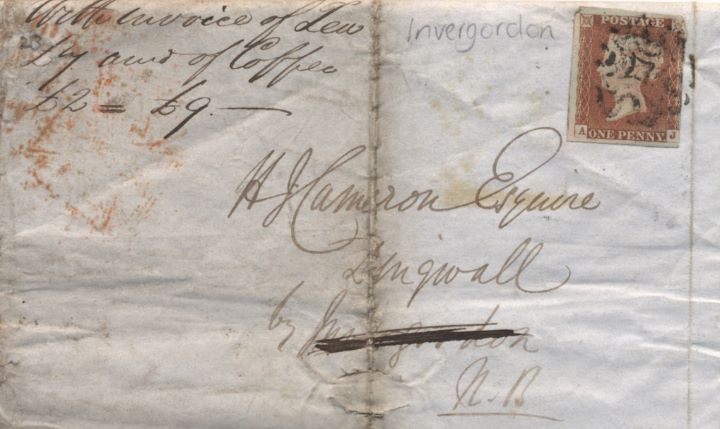 With Invoice of Tea
£7 and of Coffee
£2 = £9.—
Invergordon
POSTAGE
A ONE PENNY J
H J Cameron Esquire
Dingwall
by Invergordon
N.B